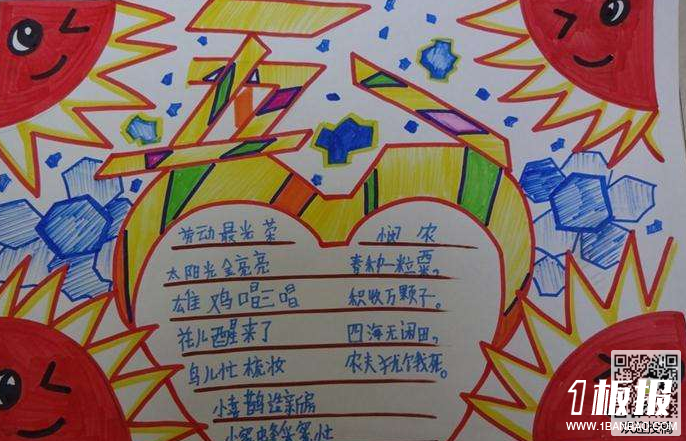 五一
劳动最光荣
太阳光金亮亮
雄鸡唱三唱
花儿醒来了
鸟儿忙梳妆
小喜鹊造新房
悯农
春种一粒粟，
秋收万颗子。
四海无闲田，
农夫犹饿死。
1板报
WWW.1BANBAO.COM